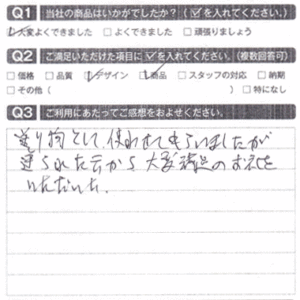 Q1 当社の商品はいかがでしたか？（☑を入れてください。）
☑大変よくできました □よくできました □頑張りましょう
Q2 ご満足いただけた項目に☑を入れてください。（複数回答可）
□価格 □品質 ☑デザイン ☑商品 □スタッフの対応 □納期
□その他（ ） □特になし
Q3 ご利用にあたってご感想をおよせください。
贈り物として、使わせてもらいましたが
送られた方から大変満足のお礼を
いただいた。